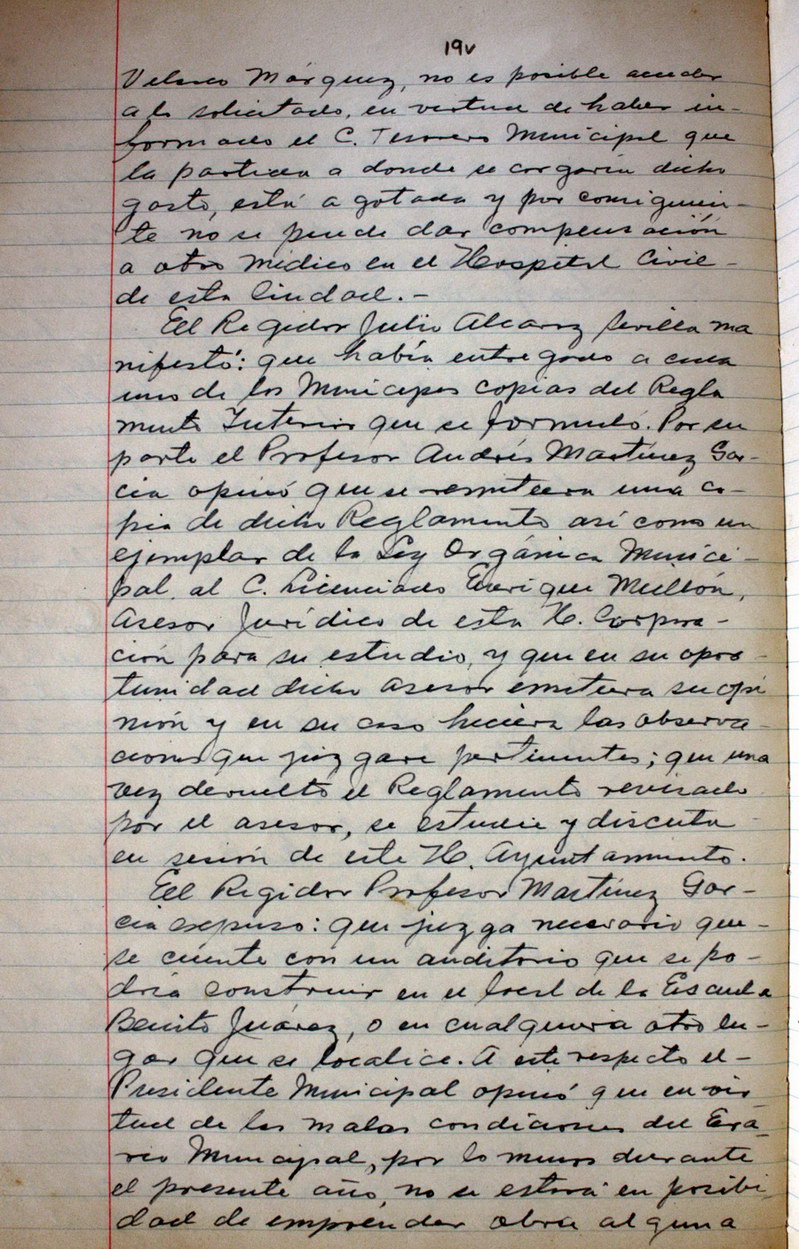 19v
Velasco Márquez, no es posible acceder
a lo solicitado, en virtud de haber in-
formado el C. Tesorero Municipal que
la partida a donde se cargaría dicho
gasto, está agotada y por consiguien-
te no se puede dar compensación
a otro médico en el Hospital Civil-
de esta Ciudad.-
El Regidor Julio Alcaraz Sevilla ma
nifestó: que había entregado a cada
uno de los Munícipes copias del Regla
mento Interior que se formuló. Por su
parte el Profesor Andrés Martínez Gar-
cía opinó que se remitiera una co-
pia de dicho Reglamento así como un
ejemplar de la Ley Orgánica Munici-
pal, al C. Licenciado Enrique
Asesor Jurídico de esta H. Corpora-
ción para su estudio, y que en su opor-
tunidad dicho asesor emitiera su opi
nión y en su caso hiciera las observa-
ciones que juzgare pertinentes; que una
vez devuelto el Reglamento revisado
por el asesor, se estudie y discuta
en sesión de este H. Ayuntamiento.
El Regidor Profesor Martínez Gar-
cía expuso: que juzga necesario que-
se cuente con un auditorio que se po-
dría construir en el local de la Escuela
Benito Juárez, o en cualquiera otro lu-
gar que se localice. A este respecto el-
Presidente Municipal opinó que en vir
tud de las malas condiciones del Era-
rio Municipal, por lo menos durante
el presente año, no se estará en posibi-
dad de emprender obra alguna